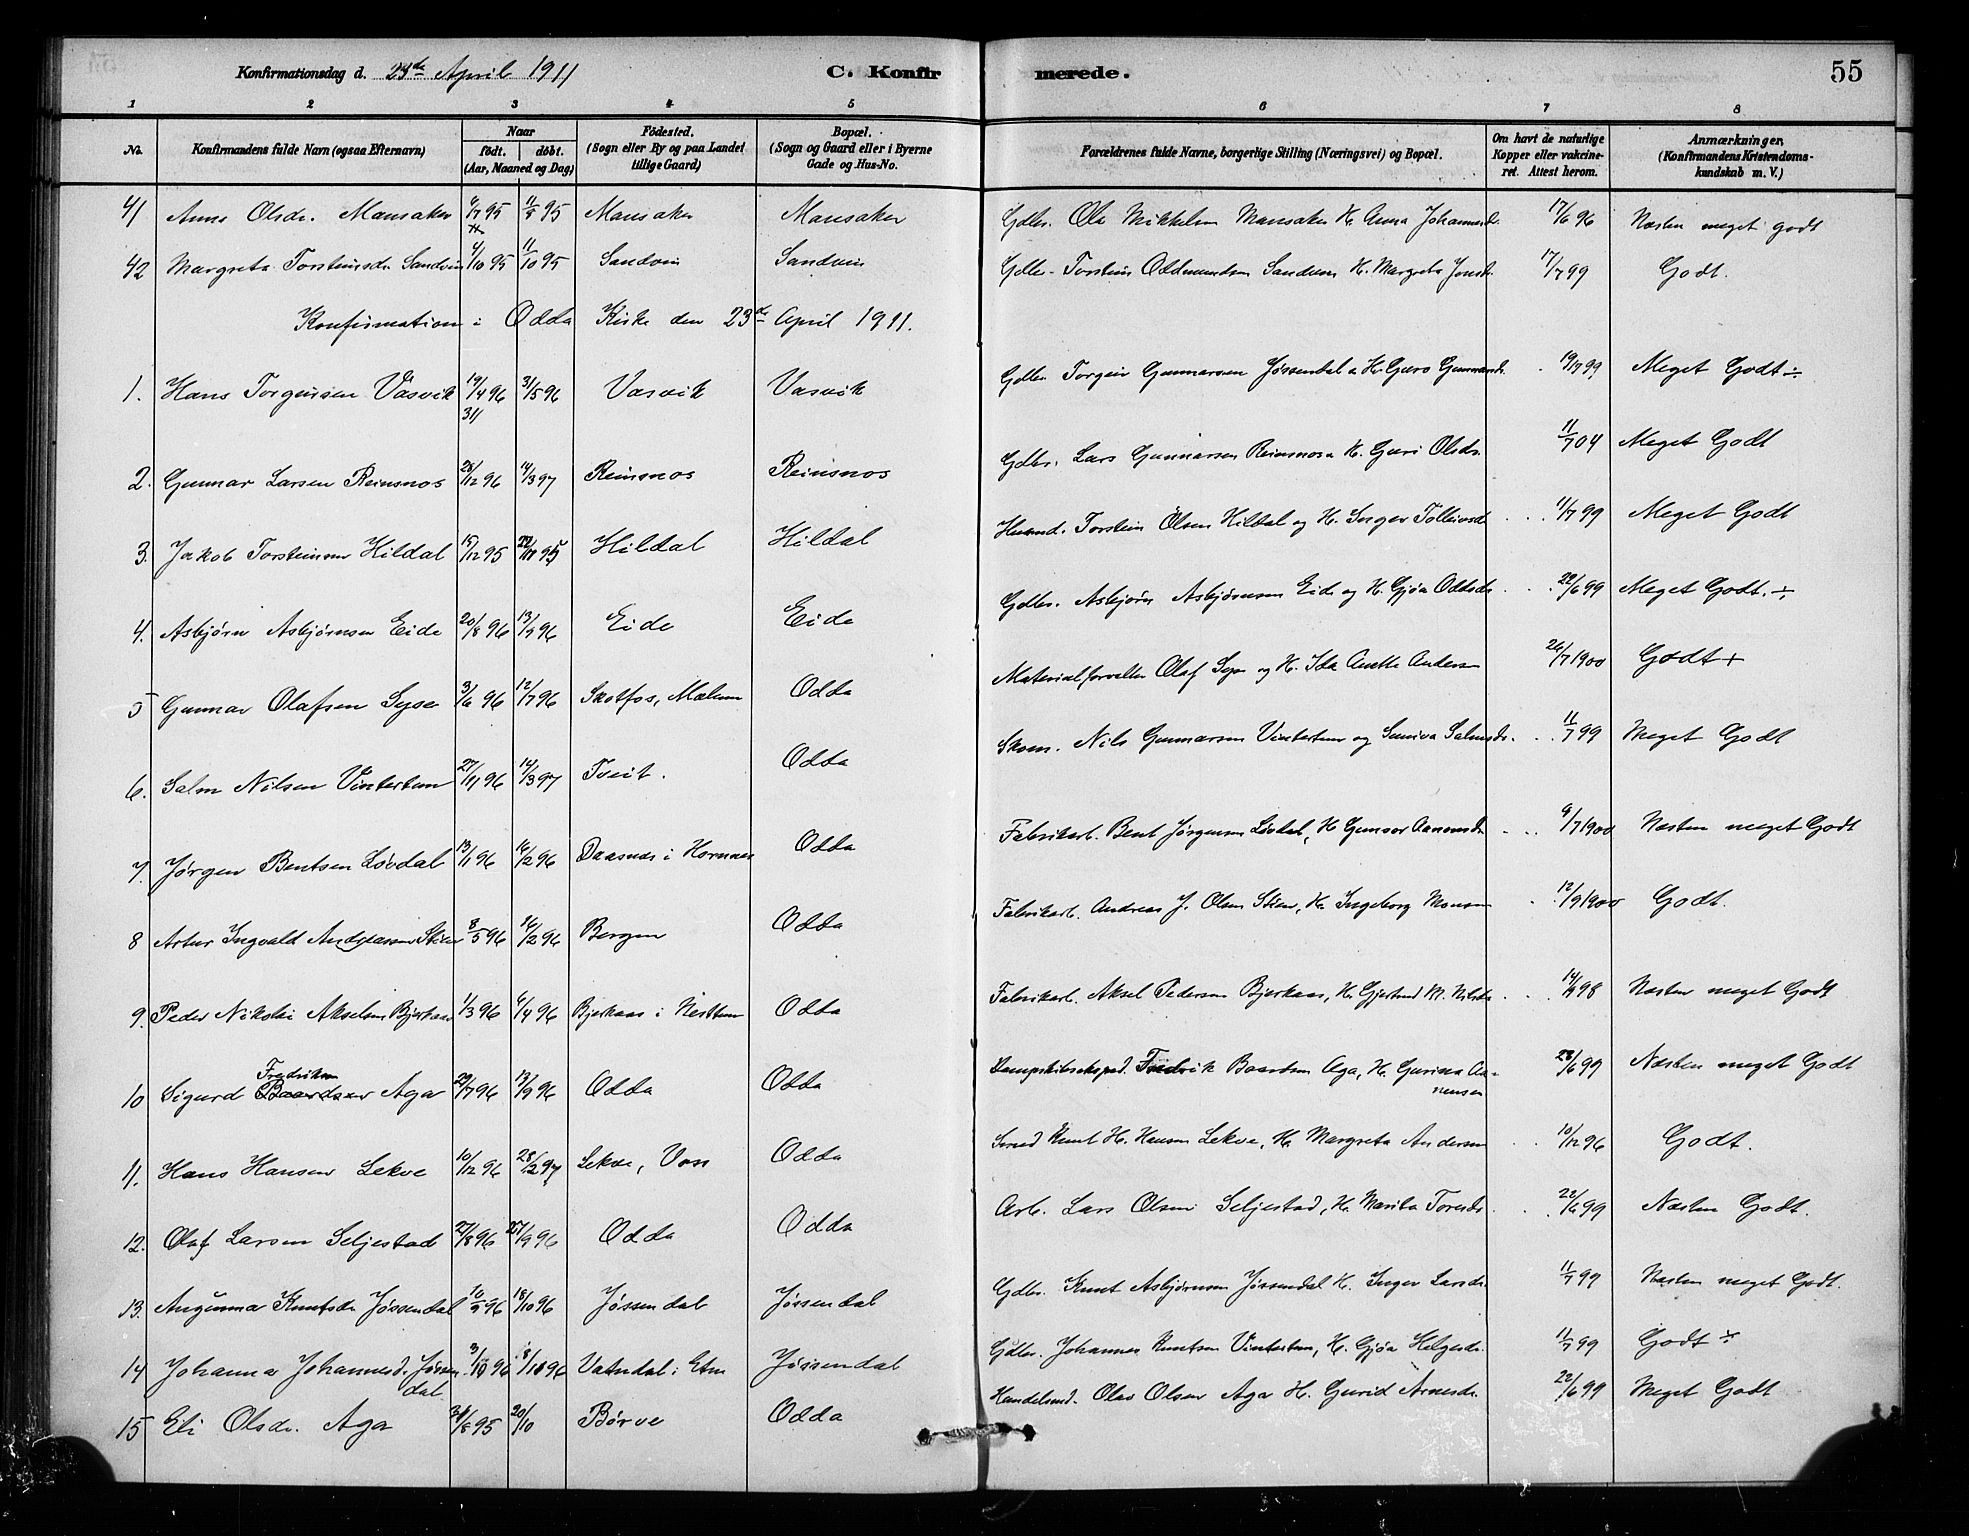 Konfirmationsdag d. 23de April 1911 C. Konfirmerede. 55
1 2 3 4 5 6 7 8
No. Konfirmandens fulde Navn (ogsaa Efternavn) Naar födt. döbt. (Aar, Maaned og Dag) Födested. (Sogn eller By og paa Landet tillige Gaard) Bopæl. (Sogn og Gaard eller i Byerne Gade og Hus-No. Forældrenes fulde Navne, borgerlige Stilling (Næringsvei) og Bopæl. Om havt de naturlige Kopper eller vakcineret. Attest herom. Anmærkninger, (Konfirmandens Kristendomskundskab m. V.)
41 Anna Olsdr. Mansaker 95 11/5 95 Mansaker Mansaker Gdbr. Ole Mikkelsen Mansaker H. Anna Johannesdr. 17/6 96 Næsten meget godt
42 Margreta Torsteinsdr Sandvin 4/10 95 11/10 95 Sandvin Sandvin Gdbr. Torstein Oddmundsen Sandven H. Margreta Jonsdr. 17/7 99 Godt.
Konfirmation i Odda Kirke den 23de April 1911.
1. Hans Torgeirsen Vasvik 19/4 96 31/5 96 Vasvik Vasvik Gdbr. Torgeir Gunnarsen Jøssendal H. Guro Gunnarsdr. 19/7 99 Meget Godt ÷
31/
2. Gunnar Larsen Reinsnos 28/12 96 14/3 97 Reinsnos Reinsnos Gdbr. Lars Gunnarsen Reinsnos H. Guri Olsdr. 11/7 04 Meget Godt
3. Jakob Torsteinsen Hildal 15/12 95 95 Hildal Hildal Husmd. Torstein Olsen Hildal og H. Inger Tolleivsdr 11/7 99 Meget Godt
4. Asbjørn Asbjørnsen Eide 20/8 96 13/9 96 Eide Eide Gdbr. Asbjørn Asbjørnsen Eide og H. Gjøa Oddsdr 22/6 99 Meget Godt. ÷
5 Gunnar Olafsen Syse 3/6 96 12/7 96 Skotfos, Melum Odda Materialforvalter Olaf Syse og H. Ida Anette Andersen 24/7 1900 Godt +
6. Salm Nilsen Vintertun 27/11 96 14/3 97 Tveit. Odda Skom. Nils Gunnarsen Vintertun og Sunniva Salmsdr. 11/7 99 Meget Godt
7. Jørgen Bentsen Løvdal 13/1 96 16/2 96 Daasnes i Hornnes Odda Fabrikarb. Bent Jørgensen Løvdal, H Gunvor Aanensdr 9/7 1900 Næsten meget Godt
8 Artur Ingvald Andreassen Stien 8/5 96 16/2 96 Bergen Odda Fabrikarb. Andreas J. Olsen Stien, H. Ingeborg Monsen 12/9 1900 Godt.
9. Peder Nikolai Akselsen Bjerkaas 1/3 96 6/4 96 Bjerkaas i Nesttun Odda Fabrikarb. Aksel Pedersen Bjerkaas, H. Gjertrud M. Nilsdr 98 Næsten meget Godt
Fredriksen
10 Sigurd Baardsen Aga 29/7 96 13/9 96 Odda Odda Dampskibseksped. Fredrik Baardsen Aga, H. Gurina Aanensen 28/6 99 Næsten meget Godt
11. Hans Hansen Lekve 10/12 96 28/2 97 Lekve, Voss Odda Smed Knut H. Hansen Lekve, H. Margreta Andersen 10/12 96 Godt.
12. Olaf Larsen Seljestad 27/8 96 27/9 96 Odda Odda Arb. Lars Olsen Seljestad, H. Marita Toresdr 22/6 99 Næsten Godt.
13. Angunna Knutsdr Jøssendal 10/9 96 18/10 96 Jøssendal Jøssendal Gdbr. Knut Asbjørnsen Jøssendal H. Inger Larsdr. 11/7 99 Næsten meget Godt.
14 Johanna Johannesd. Jøssendal 3/10 96 8/11 96 Vatndal i Etne Jøssendal Gdbr. Johannes Knutsen Vintertun, H. Gjøa Helgesdr. 11/7 99 Godt ÷
15 Eli Olsdr. Aga 95 20/10 Børve Odda Handelsmd. Olav Olsen Aga H. Gurid Arnesdr. 22/6 99 Meget Godt